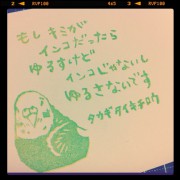 KUF100
465
KUF100
もし キミが
インコだったら
ゆるすけど
インコじゃないし
ゆるさないです
タカギタイキチロウ